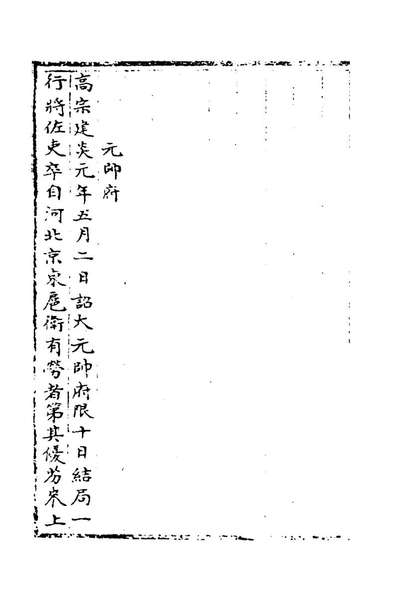 元帥府
高宗建炎元年五月二日詔大元帥府限十日結局一
行將佐吏卒自河北京東扈衛有勞者第其優劣來上